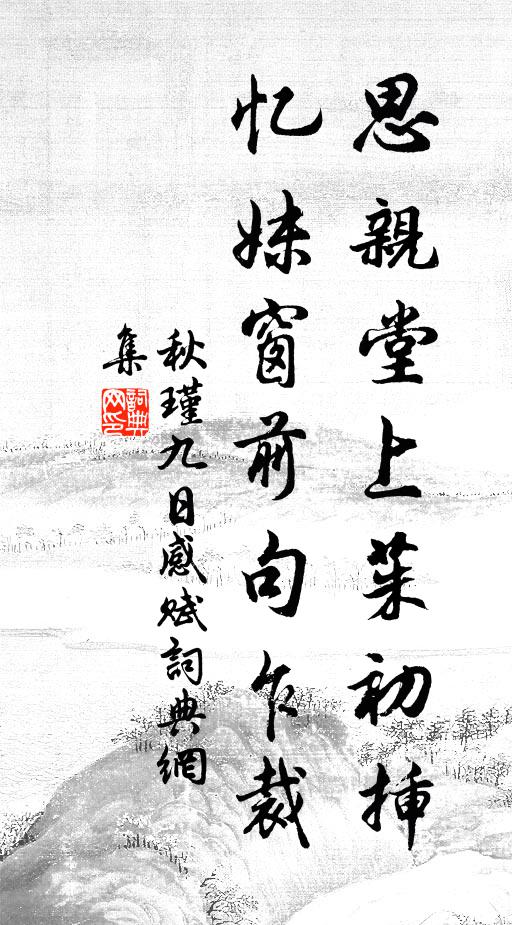 思親堂上茱初挿
忆妹窗前句乍裁
秋瑾九日感赋詞典網
集
詞典網印